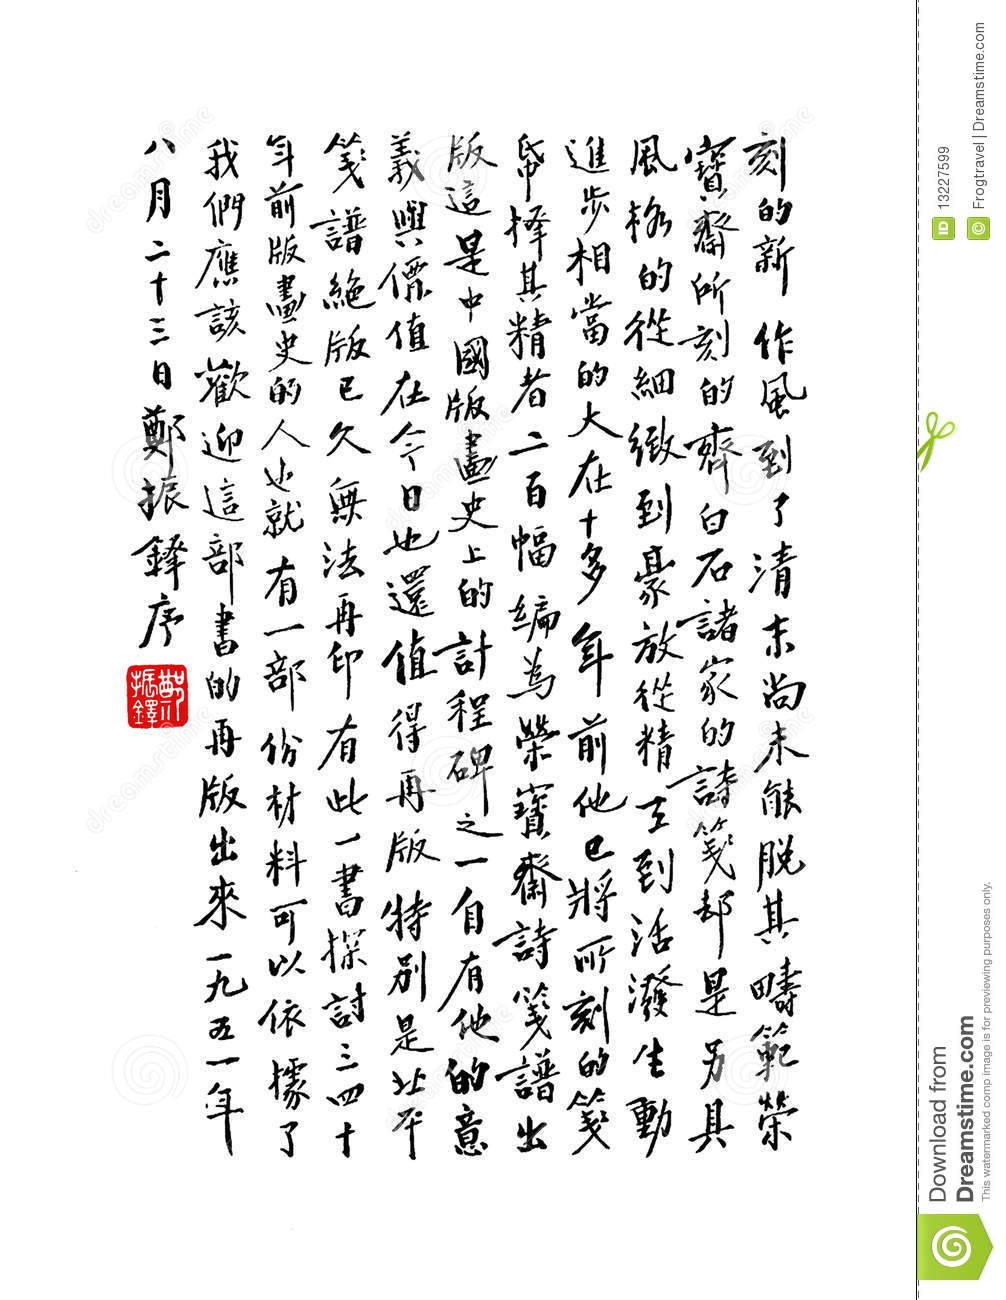 刻的新作風到了清末尚未能脫其疇範榮
寶齋所刻的齊白石諸家的詩箋却是另具
風格的從細緻到豪放從精工到活潑生動
進步相當的大在十多年前他已將所刻的箋
帋擇其精者二百幅編為榮寶齋詩箋譜出
版這是中國版畫史上的計程碑之一自有他的意
義與價值在今日也還值得再版特別是北平
箋譜絕版已久無法再印有此一書探討三四十
年前版畫史的人也就有一部份材料可以依據了
我們應該歡迎這部書的再版出來一九五一年
八月二十三日鄭振鐸序
鄭振鐸
dreamstime
Download from
Dreamstime.com
This watermarked comp image is for previewing purposes only.
ID 13227599
© Frogtravel | Dreamstime.com